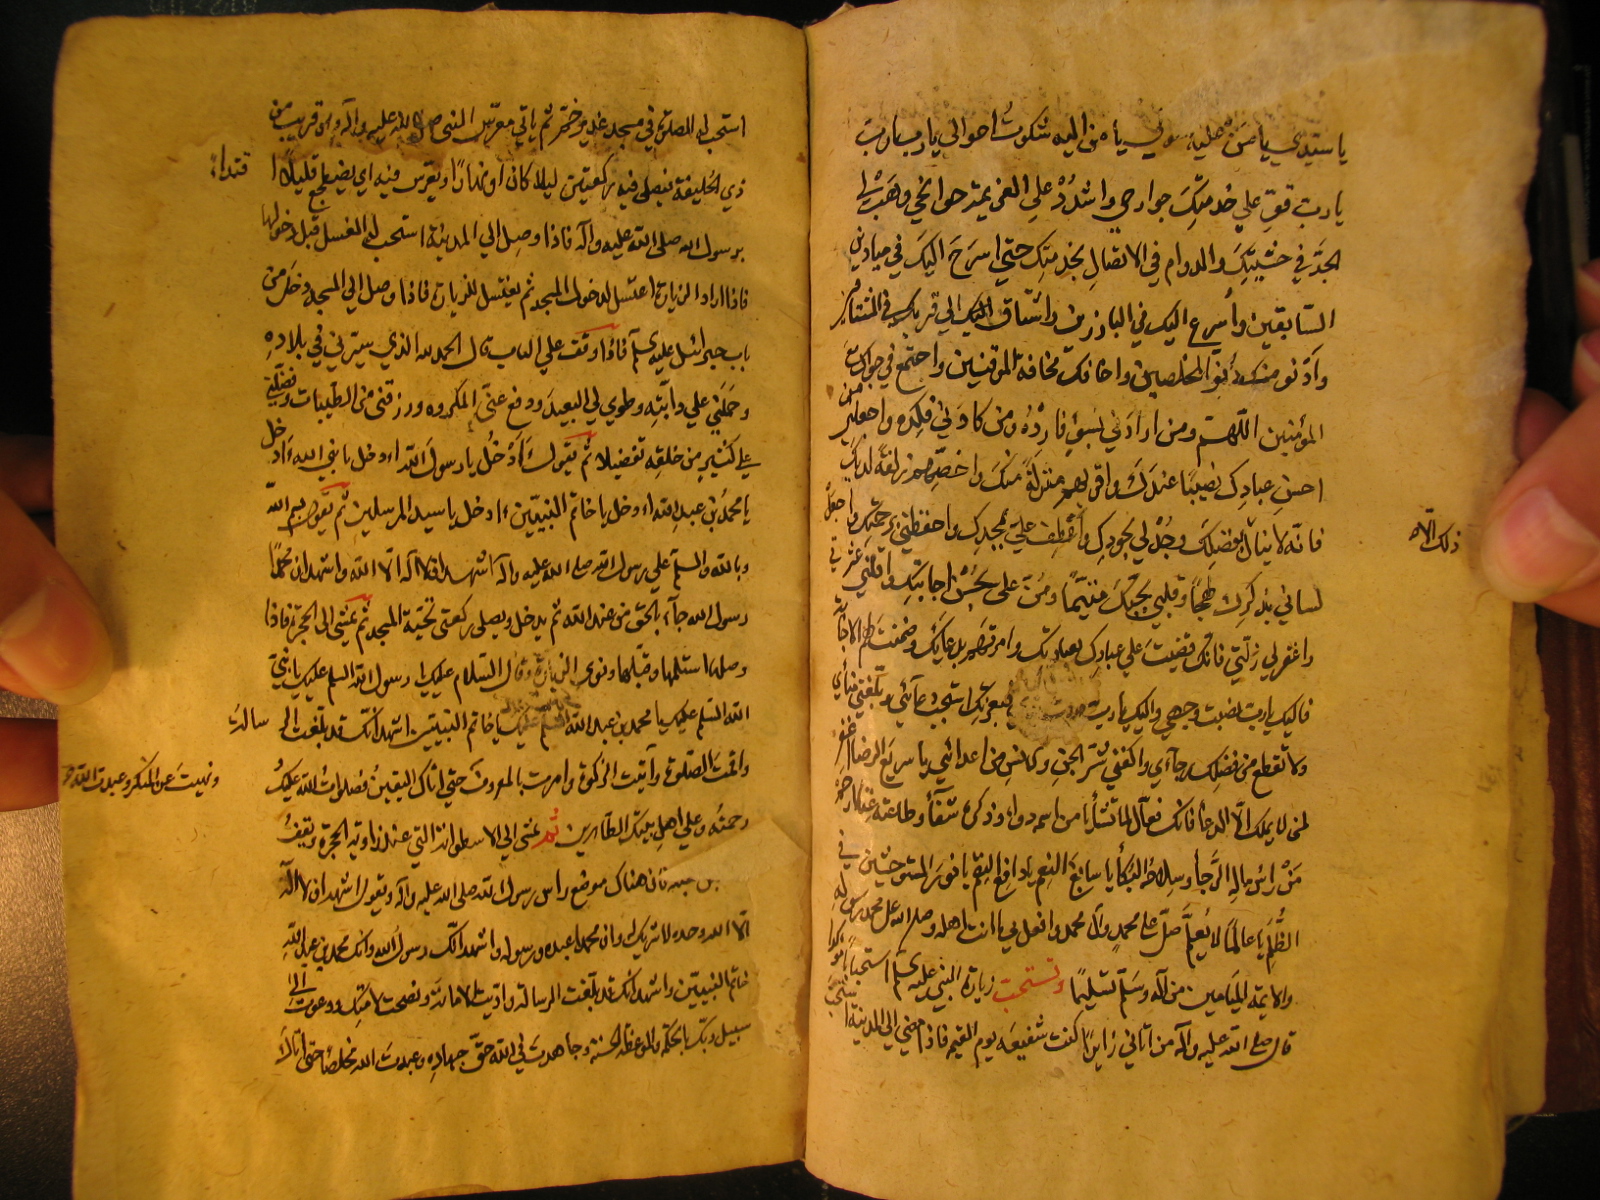 يا سيدي يا من عليه معولي يا من اليه شكوت احوالي يا رب يا رب
يا رب قوّ علي خدمتك جوارحي واشدُدْ علي العزيمة جوانحي وهَبْ لي
الجدّ في خشيتِكَ والدوام في الاتصالِ بخدمتِك حتي اسرَحَ اليكَ في ميادين
السّابقين واُسرعَ اليك في البارزين واشتاق اليك الي قربك في المشتاقين
وادْنو منك دُنوّ المخلصين واخافك مخافة الموقنين واجتمع في جوارك مع
المؤمنين اللّهم ومن ارادَني بسوءٍ فارِدْهُ ومن كادَني فكِده واجعلني من
احسن عبادك نصيبًا عندَكَ واقربهم منزلةً منكَ واخصّهم زلفةً لديك
فانّه لا ينال ذلك الّا بفضلِكَ وجُدْ لي بجودِك واعْطِف علَيّ بمجدِك واحفظني برحمتِك واجعلْ
لساني بذكرك لهِجًا وقلبي بحبّك متيّمًا ومُنّ علي بحُسْن اجابتِك واقلني عثرتي
واغفر لي زلّتي فانّك قضيتَ علي عبادِك بعبادتك وامرتهم بدعائك وضمنت لهم الاجابة
فاليك يا ربّ نصبت وجهي واليك يا ربّ مددت يدي فبعزتك استجب دعائي وبلّغني مناي
ولا تقطع من فضلِك رجآءي واكفني شرّ الجنّ والانس من اعدائي يا سريع الرضا اغفر
لمن لا يملك الّا الدعا فانّك فعّال لما تشاُ يا من اسمه دواء وذكره شفاء وطاعته غنا ارحم
مَنْ راسُ مالِه الرّجا وسِلاحُه البُكأ يا سابغَ النِعم يا دافِع النِقم يا نورَ المستوحشين في
الظُلَم يا عالمًا لا يُعلّم صَلّ علي محمدٍ وآل محمد وافعل بي ما انت اهله وصلى الله على محمد رسوله
والايمة الميَامين من آله وسَلّم تسليمًا وتستحبّ زيارة النبي عليه السلام استحبابًا مؤكدا
قال صلى الله عليه وآله من اتاني زايرًا كنت شفيعه يوم القيمة فاذا مضي الي المدينة
ذلك الّا
استحب له الصلوة في مسجد غدير خمّ ثم ياتي معرّس النبي صلى الله عليه وآله وهو قريب من
ذي الحُليفة فيصلي فيه ركعتين ليلا كان او نهارًا ويعرّس فيه اي يضطجع قليلًا اقتداء
برسول الله صلى الله عليه وآله فاذا وصل الي المدينة استحب له الغسل قبل دخولها
فاذا اراد الزيارة اغتسل لدخول المسجد ثم يغتسل للزيارة فاذا وصل الي المسجد دخل من
باب جبرائيل عليه السلام فاذا وقف علي الباب قال الحمد لله الذي سيّرني في بلادهِ
وحملني علي دابّته وطوي لي البعيدَ ودفع عنّي المكروه ورزقني من الطيّبات وفضلني
علي كثير من خلقه تفضيلا ثم يقول ءَاَدْخُل يا رسول الله ءادخل يا نبي الله ءادخل
يا محمدُ بن عبدِ الله ءادخل يا خاتم النبيّين ءادخل يا سيد المرسلين ثم يقول بسم الله
وبالله والسلم علي رسول الله صلى الله عليه وآله اشهد ان لا اله الّا الله واشهد ان محمّدًا
رسول الله جآء بالحق من عند الله ثم يدخل ويصلي ركعتي تحيّة المسجد ثم يمشي الي الحجرة فاذا
وصلها استلمها وقبّلها ونوي الزيارة وقال السّلام عليك يا رسول الله السلم عليك يا نبيّ
الله السّلم عليك يا محمد بن عبد الله السلم عليك يا خاتم النبيّين اشهد انّك قد بلّغت الرسالةَ
واقمت الصّلوة وآتيت الزكوة وامرت بالمعروف ونهيت عن المنكر وعبدت الله حتي اتاك اليقينُ فصلوات الله عليك
ورحمتُه وعلي اهلِ بيتِك الطّاهرين ثم يمشي الي الاسطوانة التي عند زاوية الحجرة ويقفُ
فان هناك موضع راس رسول الله صلى الله عليه وآله ويقول اشهد ان لا اله
الّا الله وحده لا شريك له وان محمدا عبده ورسوله واشهد انّك رسول الله وانك محمد بن عبد الله
خاتم النبيّين واشهد انّك قد بلّغت الرسالة وادّيت الامانة ونصحت لامّتِك ودعوت الي
سبيل ربّك بالحكمة والموعظة الحسنة وجاهدت في الله حقّ جهادِه وعبدتَ الله مخلصًا حتي اتاك